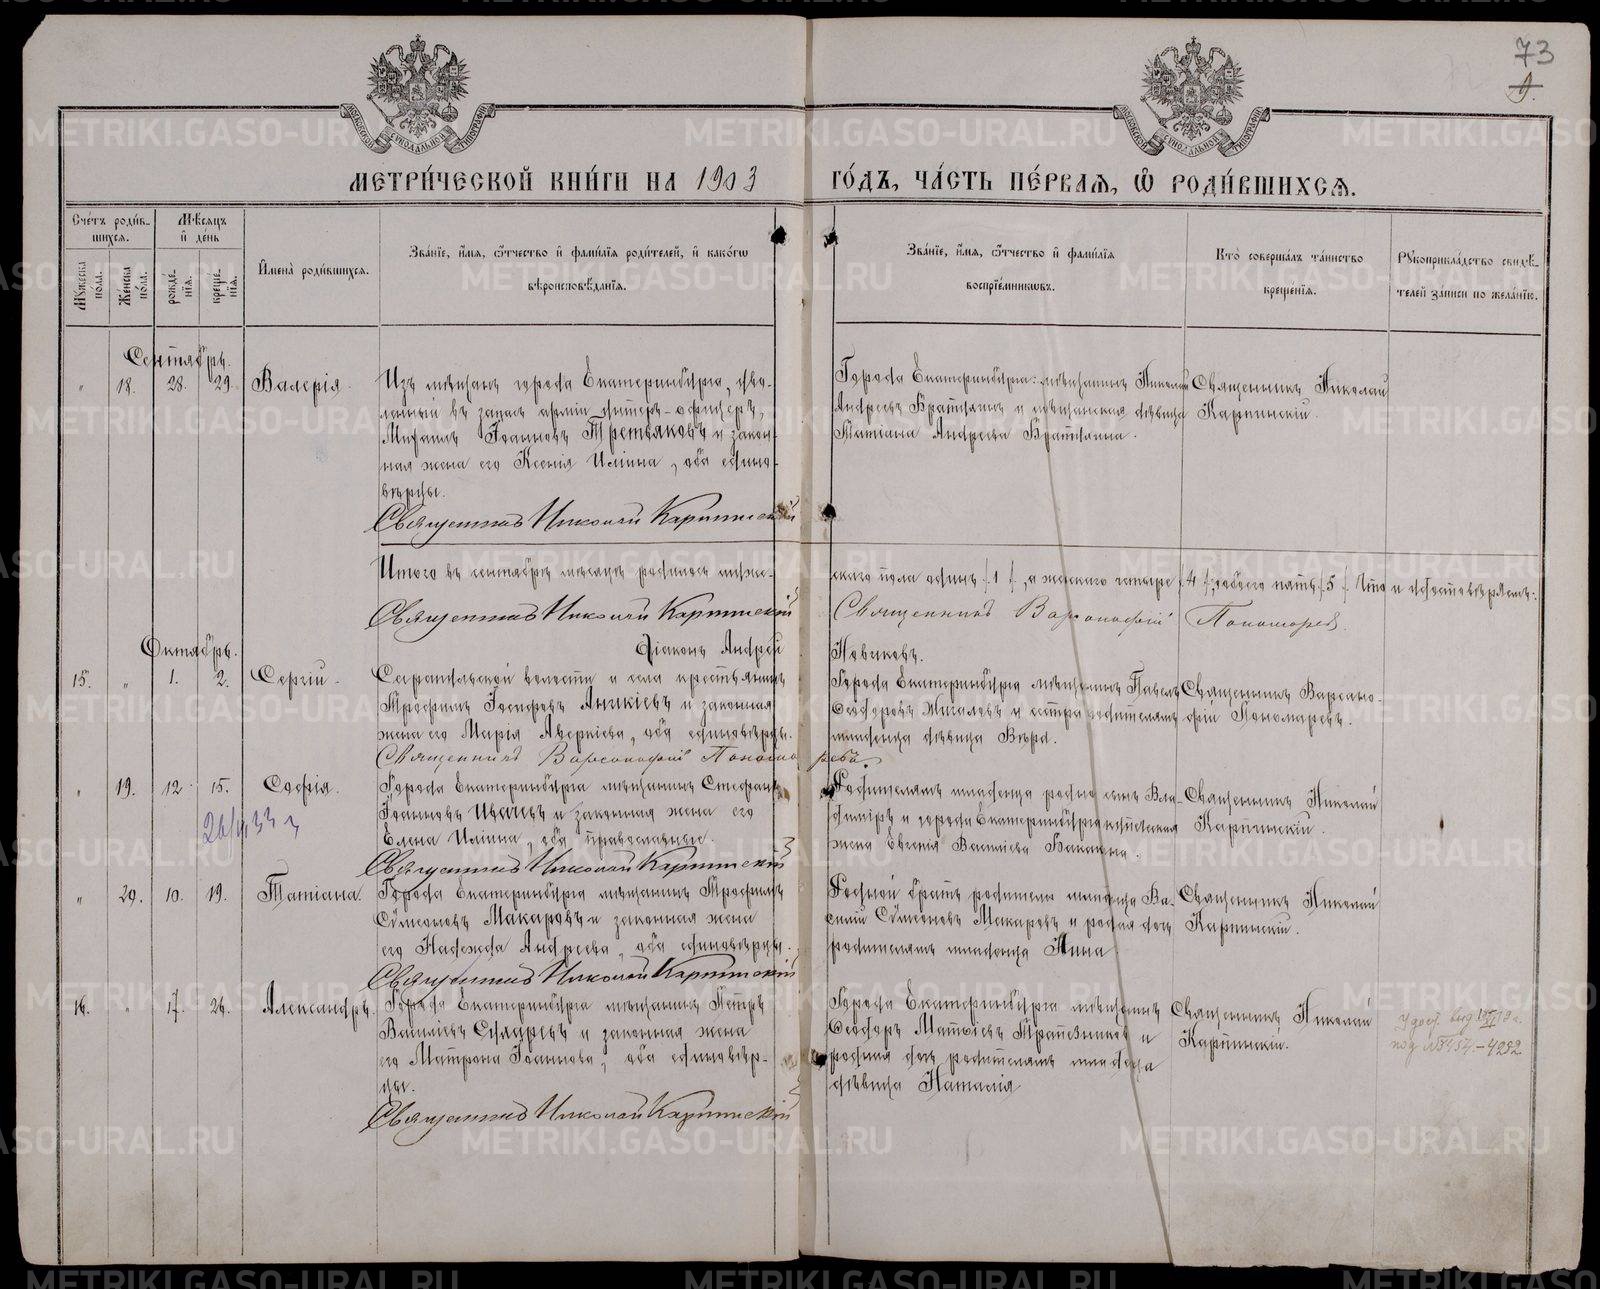 73
9.
МОСКОВСКОЙ СѴНОДАЛЬНОЙ ТИПОГРАФІИ
МОСКОВСКОЙ СѴНОДАЛЬНОЙ ТИПОГРАФІИ
МЕТРИ́ЧЕСКОЙ КНИ́ГИ НА 1903 ГО́ДЪ, ЧА́СТЬ ПЕ́РВАѦ, Ѡ҆ РОДИ́ВШИХСѦ.
Сче́тъ роди́в-
шихсѧ.
Мꙋ́жеска по́ла.
Же́нска по́ла.
Мѣ́сѧцъ
и҆ де́нь
рожде́-нїѧ.
креще́-нїѧ.
И҆мена̀ роди́вшихсѧ.
Зва́нїе, и҆́мѧ, ѻ҆́тчество и҆ фами́лїѧ роди́телей, и҆ како́гѡ
вѣроисповѣ́данїѧ.
Зва́нїе, и҆́мѧ, ѻ҆́тчество и҆ фами́лїѧ
воспрїе́мникѡвъ.
Кто̀ соверша́лъ та́инство
креще́нїѧ.
Рꙋкоприкла́дство свидѣ́-
телей за́писи по жела́нїю.
Сентябрь.
" 18. 28. 29. Валерія.
Изъ мѣщанъ города Екатеринбурга, уво-
ленный въ запасъ арміи унтеръ-офицеръ,
Михаилъ Іоанновъ Третьяковъ и закон-
ная жена его Ксенія Иліина, оба едино-
вѣрцы.
Священникъ Николай Карпинскій
Города Екатеринбурга: мѣщанинъ Николай
Андреевъ и мѣщанская дѣвица
Татіана Андреева
Священникъ Николай
Карпинскій.
Итого въ сентябрѣ мѣсяцѣ родилось муже-
скаго пола одинъ /1/, а женскаго четыре /4/, обоего пять /5/. Что и удостовѣряемъ:
Священникъ Николай Карпинскій
Священникъ Варсонофій Пономарев.
Діаконъ Андрей
Новиковъ.
Октябрь.
15. " 1. 2. Сергій.
волости и села крестьянинъ
Трофимъ Іосифовъ Аникіевъ и законная
жена его Марія Аверкіева, оба единовѣрцы.
Священникъ Варсонофій Пономаревъ.
Города Екатеринбурга мѣщанинъ Павелъ
Ѳеодоровъ и сестра родителямъ
младенца дѣвица Вѣра.
Священникъ Варсано-
фій Пономаревъ.
" 19. 12. 15. Софія.
Города Екатеринбурга мѣщанинъ Стефанъ
Іоанновъ Ивачевъ и законная жена его
Елена Иліина, оба православные.
Священникъ Николай Карпинскій
Родителямъ младенца родной сынъ Вла-
диміръ и города Екатеринбурга купеческая
жена Евгенія Василіева Бакакина.
Священникъ Николай
Карпинскій.
" 29. 10. 19. Татіана.
Города Екатеринбурга мѣщанинъ Трофимъ
Сѵмеоновъ Макаровъ и законная жена
его Надежда Андреева, оба единовѣрцы.
Священникъ Николай Карпинскій
Родной братъ родителю младенца Ва-
силій Сѵмеоновъ Макаровъ и родная дочь
родителямъ младенца Анна
Священникъ Николай
Карпинскій.
16. " 17. 26. Александръ.
Города Екатеринбурга мѣщанинъ Петръ
Василіевъ и законная жена
его Матрона Іоаннова, оба единовѣр-
цы.
Священникъ Николай Карпинскій
Города Екатеринбурга мѣщанинъ
Ѳеодоръ Матѳіевъ Трапезниковъ и
родная дочь родителямъ младенца
дѣвица Наталія
Священникъ Николай
Карпинскій.
METRIKI.GASO-URAL.RU